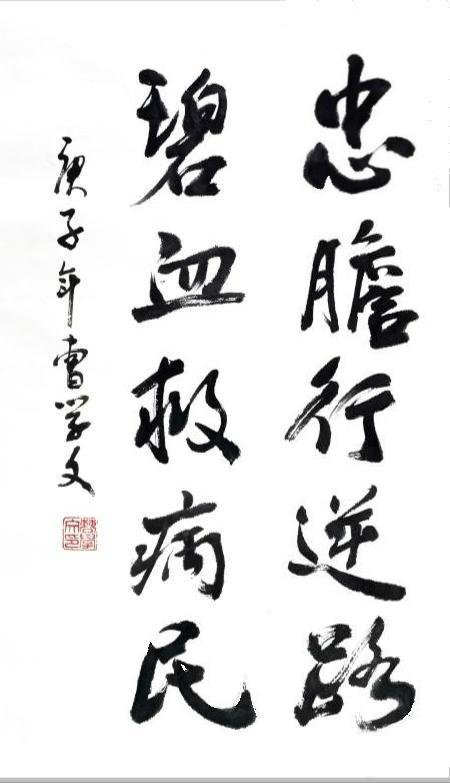 忠膽行逆路
碧血救病民
庚子年曹学文